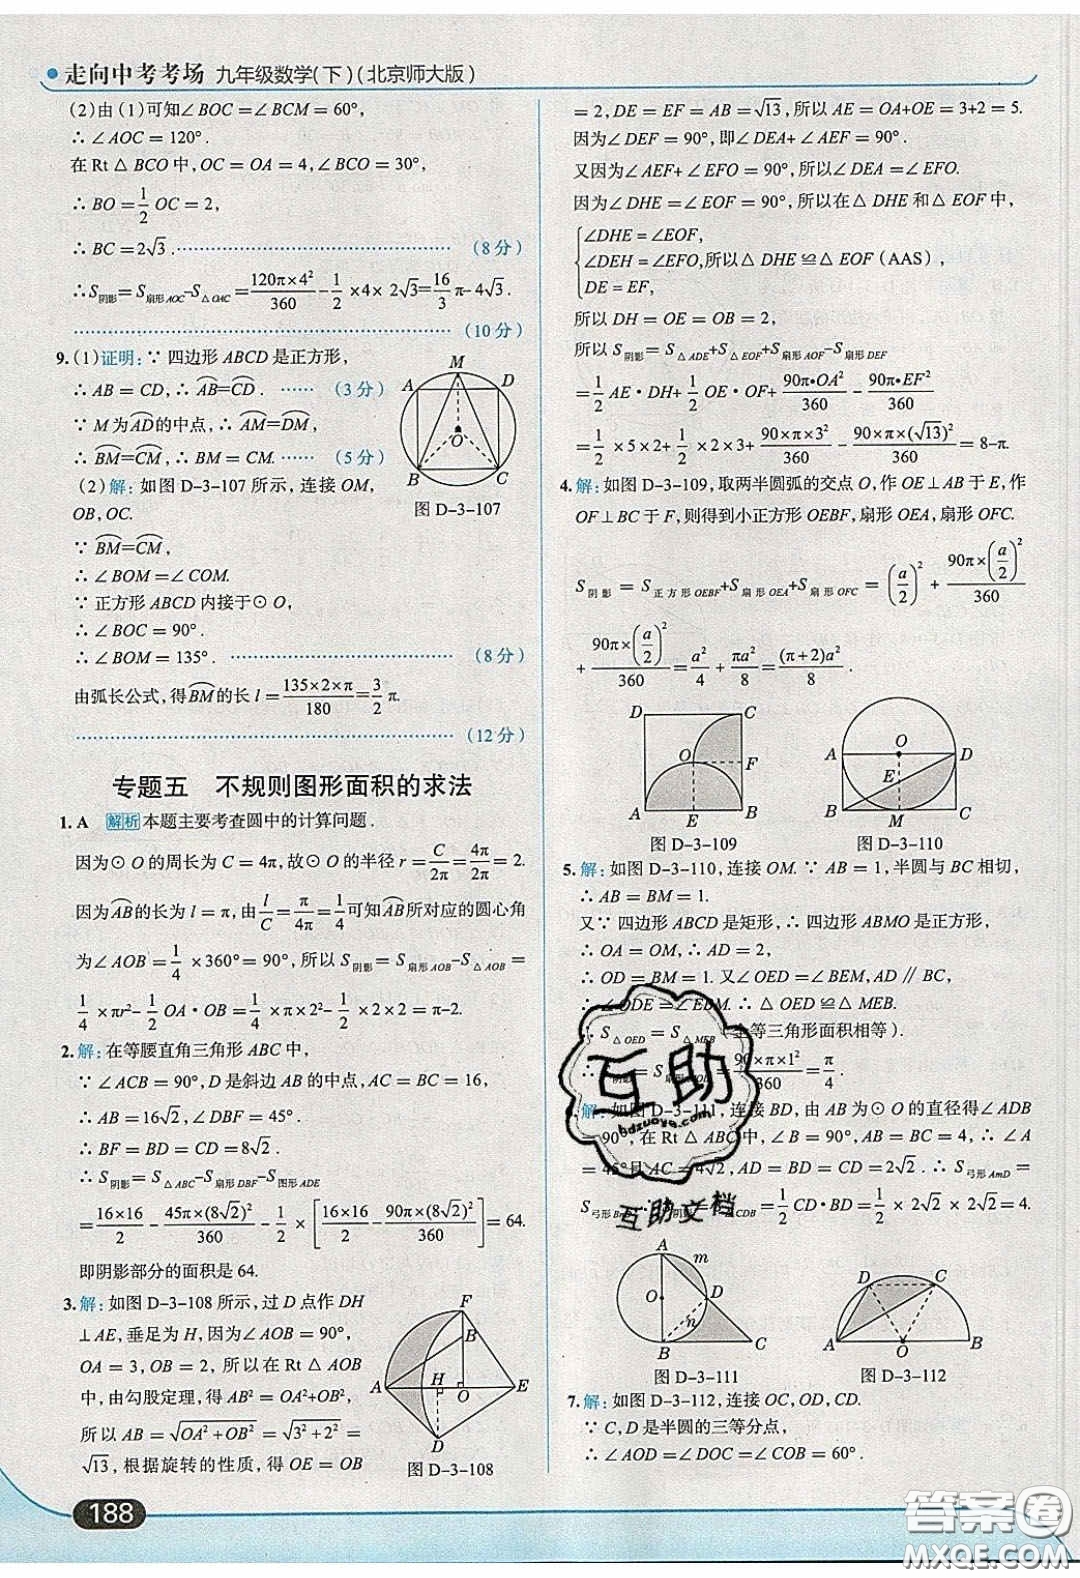 走向中考考场 九年级数学(下)(北京师大版)
(2)由(1)可知∠BOC=∠BCM=60°,
∴∠AOC=120°.
在Rt△BCO中,OC=OA=4,∠BCO=30°,
∴BO=1/2 OC=2,
∴BC=2√3. (8分)
∴S阴影=S扇形AOC-S△OAC=120π×4²/360-1/2×4×2√3=16/3π-4√3.
(10分)
9.(1)证明:∵四边形ABCD是正方形,
∴AB=CD,∴AB⌒=CD⌒. …… (3分)
∵M为AD⌒的中点,∴AM⌒=DM⌒,
∴BM⌒=CM⌒,∴BM=CM. …… (5分)
(2)解:如图D-3-107所示,连接OM,
OB,OC.
∵BM⌒=CM⌒,
∴∠BOM=∠COM.
∵正方形ABCD内接于⊙O,
∴∠BOC=90°.
∴∠BOM=135°. (8分)
由弧长公式,得BM⌒的长l=135×2×π/180=3/2π.
(12分)
A M D O B C
图D-3-107
专题五 不规则图形面积的求法
1.A 解析 本题主要考查圆中的计算问题.
因为⊙O的周长为C=4π,故⊙O的半径r=C/2π=4π/2π=2.
因为AB⌒的长为l=π,由l/C=π/4π=1/4可知AB⌒所对应的圆心角
为∠AOB=1/4×360°=90°,所以S阴影=S扇形AOB-S△AOB=
1/4×πr²-1/2OA·OB=1/4×π×2²-1/2×2×2=π-2.
2.解:在等腰直角三角形ABC中,
∵∠ACB=90°,D是斜边AB的中点,AC=BC=16,
∴AB=16√2,∠DBF=45°.
∴BF=BD=8√2.
∴S阴影=S△ABC-S扇形DBF-S图形ADE
=16×16/2-45π×(8√2)²/360-1/2×[16×16/2-90π×(8√2)²/360]=64.
即阴影部分的面积是64.
3.解:如图D-3-108所示,过D点作DH
⊥AE,垂足为H,因为∠AOB=90°,
OA=3,OB=2,所以在Rt△AOB
中,由勾股定理,得AB²=OA²+OB²
所以AB=√(OA²+OB²)=√(3²+2²)=
√13,根据旋转的性质,得OE=OB
F B A H O E D
图D-3-108
=2,DE=EF=AB=√13,所以AE=OA+OE=3+2=5.
因为∠DEF=90°,即∠DEA+∠AEF=90°.
又因为∠AEF+∠EFO=90°,所以∠DEA=∠EFO.
因为∠DHE=∠EOF=90°,所以在△DHE和△EOF中,
∠DHE=∠EOF,
∠DEH=∠EFO,所以△DHE≌△EOF(AAS),
DE=EF,
所以DH=OE=OB=2,
所以S阴影=S△ADE+S△EOF+S扇形AOF-S扇形DEF
=1/2AE·DH+1/2OE·OF+90π•OA²/360-90π×EF²/360
=1/2×5×2+1/2×2×3+90×π×3²/360-90×π×(√13)²/360=8-π.
4.解:如图D-3-109,取两半圆弧的交点O,作OE⊥AB于E,作
OF⊥BC于F,则得到小正方形OEBF,扇形OEA,扇形OFC.
S阴影=S正方形OEBF+S扇形OEA+S扇形OFC=(a/2)²+90π×(a/2)²/360
+90π×(a/2)²/360=a²/4+πa²/8=(π+2)a²/8.
D C O F A E B
图D-3-109
A O D E B M C
图D-3-110
5.解:如图D-3-110,连接OM.∵AB=1,半圆与BC相切,
∴AB=BM=1.
又∵四边形ABCD是矩形,∴四边形ABMO是正方形,
∴OA=OM,∴AD=2,
∴OD=BM=1.又∠OED=∠BEM,AD∥BC,
∴∠ODE=∠EBM.∴△OED≌△MEB.
∴S△OED=S△MEB(全等三角形面积相等).
S阴影=S扇形 =90×π×1²/360=π/4.
解:如图D-3-111,连接BD,由AB为⊙O的直径得∠ADB
90°,在Rt△ABC中,∠B=90°,AB=BC=4,∴∠A
=45°且AC=4√2,AD=BD=CD=2√2.∴S弓形AmD=
S弓形BnD ∴S阴影=S△CDB=1/2CD·BD=1/2×2√2×2√2=4.
A m O D n B C
图D-3-111
D C A O B
图D-3-112
7.解:如图D-3-112,连接OC,OD,CD.
∵C,D是半圆的三等分点,
∴∠AOD=∠DOC=∠COB=60°.
互助
bdzuoye.com
互助文档
188
答案圈
MXQE.COM